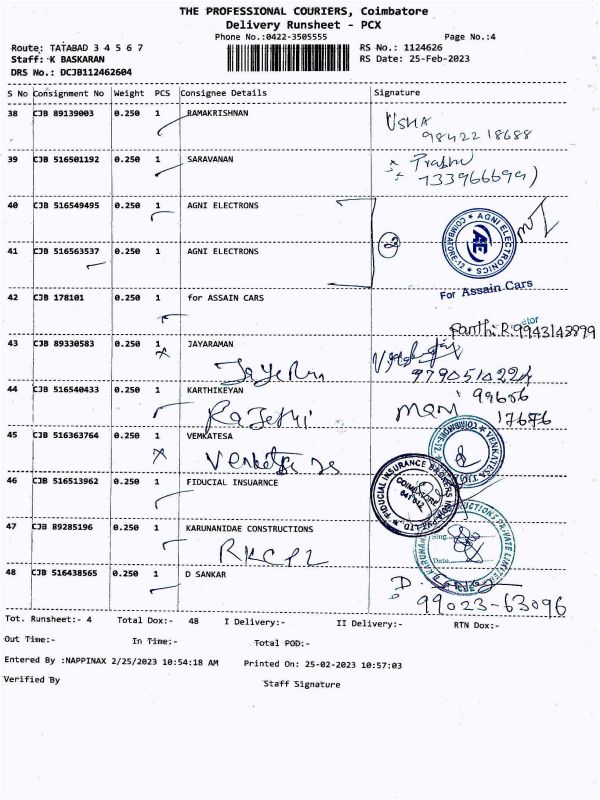 THE PROFESSIONAL COURIERS, Coimbatore
Delivery Runsheet - PCX
Phone No.:0422-3505555 Page No.:4
Route: TATABAD 3 4 5 6 7 RS No.: 1124626
Staff: K BASKARAN RS Date: 25-Feb-2023
DRS No.: DCJB112462604
S No Consignment No Weight PCS Consignee Details Signature
38 CJB 89139003 0.250 1 RAMAKRISHNAN USHA
9842218688
39 CJB 516501192 0.250 1 SARAVANAN Prabhu
7339666699)
40 CJB 516549495 0.250 1 AGNI ELECTRONS
2 AGNI ELECTRONICS COIMBATORE-12 AE
41 CJB 516563537 0.250 1 AGNI ELECTRONS
42 CJB 178101 0.250 1 for ASSAIN CARS For Assain Cars
Panthi.R. 9943143899
43 CJB 89330583 0.250 1 JAYARAMAN
9790510224
44 CJB 516540433 0.250 1 KARTHIKEYAN 99656
17676
45 CJB 516363764 0.250 1 VEMKATESA
Venkatesa VENKATESA
46 CJB 516513962 0.250 1 FIDUCIAL INSUARNCE FIDUCIAL INSURANCE BROKERS INDIA PVT LTD COIMBATORE 641 012
47 CJB 89285196 0.250 1 KARUNANIDAE CONSTRUCTIONS
RKCPL Sing... Date...
48 CJB 516438565 0.250 1 D SANKAR D.
99023-63096
Tot. Runsheet:- 4 Total Dox:- 48 I Delivery:- II Delivery:- RTN Dox:-
Out Time:- In Time:- Total POD:-
Entered By :NAPPINAX 2/25/2023 10:54:18 AM Printed On: 25-02-2023 10:57:03
Verified By Staff Signature